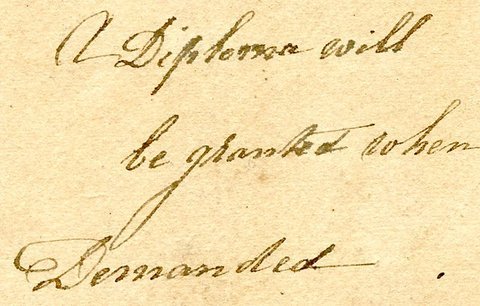 A Diploma will
be granted when
Demanded .